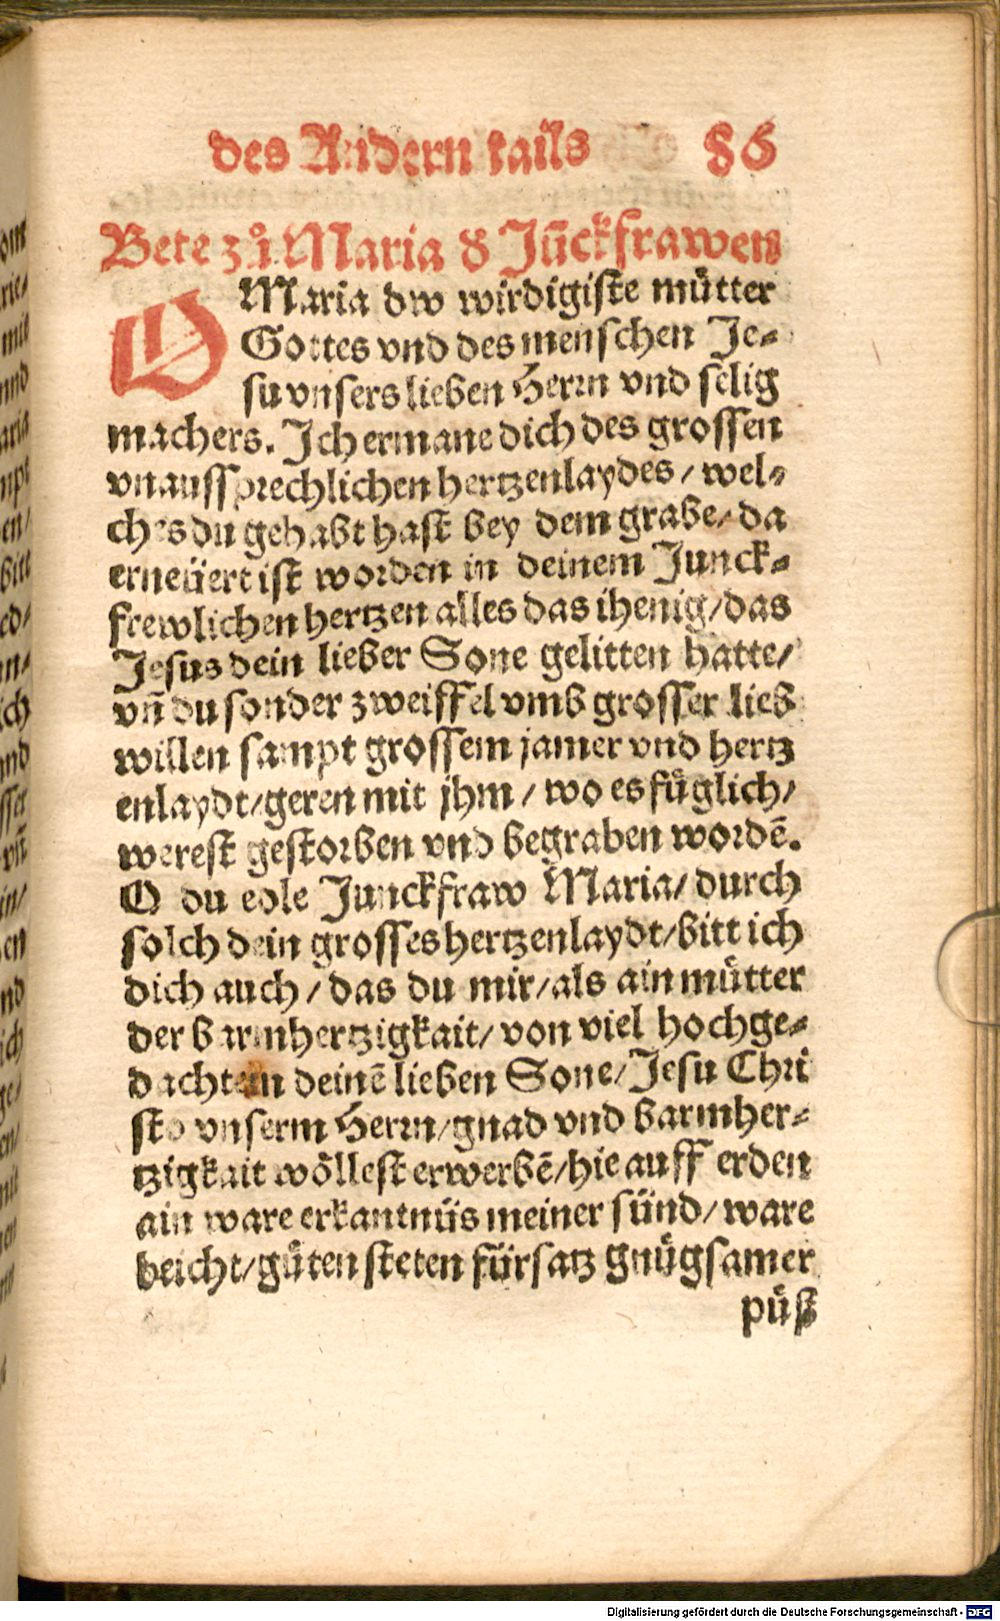 des Andern tails 86
Bete zů Maria d Jūckfrawen
O Maria dw wirdigiste můtter
Gottes vnd des menschen Je-
su vnsers lieben Herrn vnd selig
machers. Ich ermane dich des grossen
vnaussprechlichen hertzenlaydes/ wel-
ches du gehabt hast bey dem grabe/ da
erneüert ist worden in deinem Junck-
frewlichen hertzen alles das ihenig/ das
Jesus dein lieber Sone gelitten hatte/
vn̄ du sonder zweiffel vmb grosser lieb
willen sampt grossem jamer vnd hertz
enlaydt/ geren mit jhm/ wo es füglich/
werest gestorben vnd begraben wordē.
O du edle Junckfraw Maria/ durch
solch dein grosses hertzenlaydt/ bitt ich
dich auch/ das du mir/ als ain můtter
der barmhertzigkait/ von viel hochge-
dachten deinē lieben Sone/ Jesu Chri
sto vnserm Herrn/ gnad vnd barmher-
tzigkait wöllest erwerbē/ hie auff erden
ain ware erkantnüs meiner sünd/ ware
beicht/ gůten steten fürsatz gnůgsamer
půß
Digitalisierung gefördert durch die Deutsche Forschungsgemeinschaft - DFG